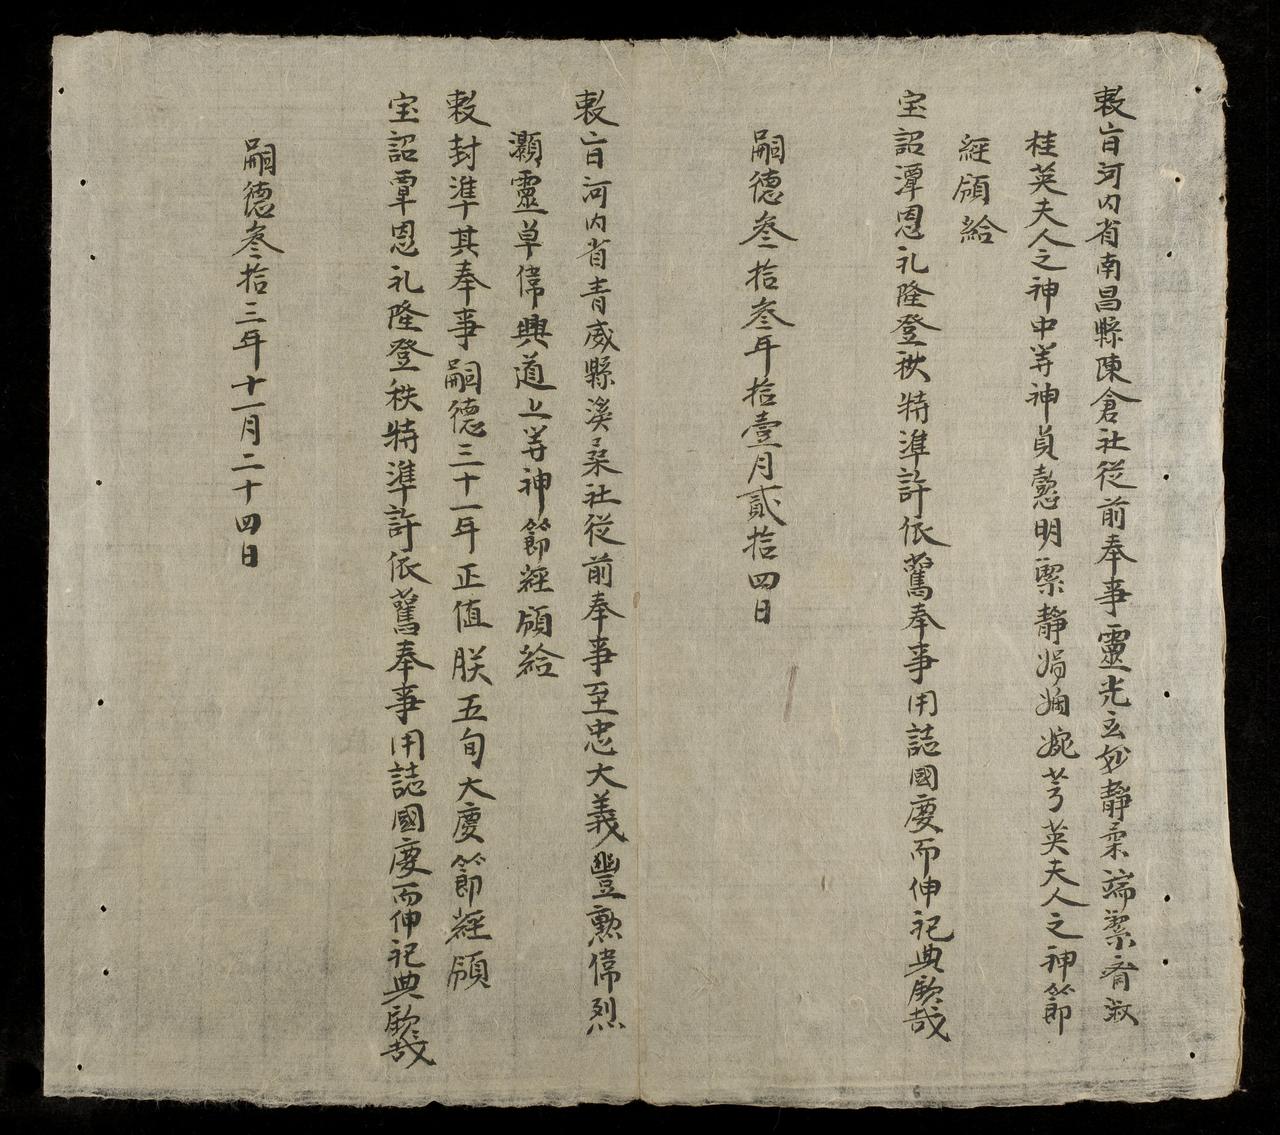 敕旨河内省南昌縣陳倉社從前奉事靈光玄妙靜柔端潔齊淑
桂英夫人之神中等神貞慤明潔靜娟嫻婉芳英夫人之神節
經頒給
宝詔潭恩礼隆登秩特準許依舊奉事用誌國慶而伸祀典欽哉
嗣德叁拾叁年拾壹月貳拾四日
敕旨河内省青威縣溪桑社從前奉事至忠大義豐勲偉烈
灝靈卓偉興道上等神節經頒給
敕封準其奉事嗣德三十一年正值朕五旬大慶節經頒
宝詔覃恩礼隆登秩特準許依舊奉事用誌國慶而伸祀典欽哉
嗣德叁拾三年十一月二十四日